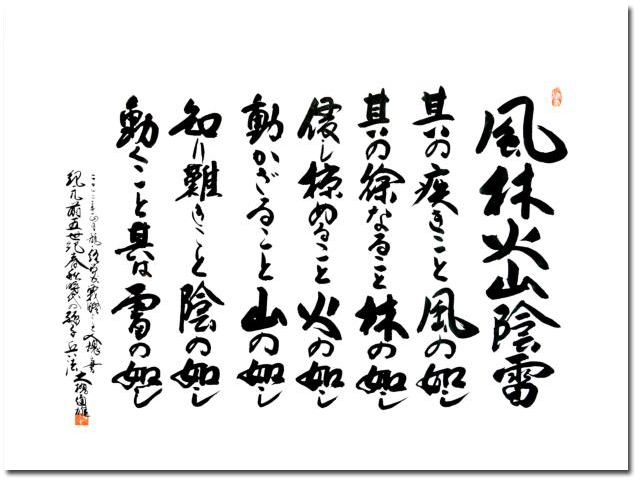 風林火山陰雷
其の疾きこと風の如し
其の徐なること林の如し
侵し掠めること火の如し
動かざること山の如し
知り難きこと陰の如し
動くこと其は雷の如し
紀元前五世紀春秋時代の孫子兵法